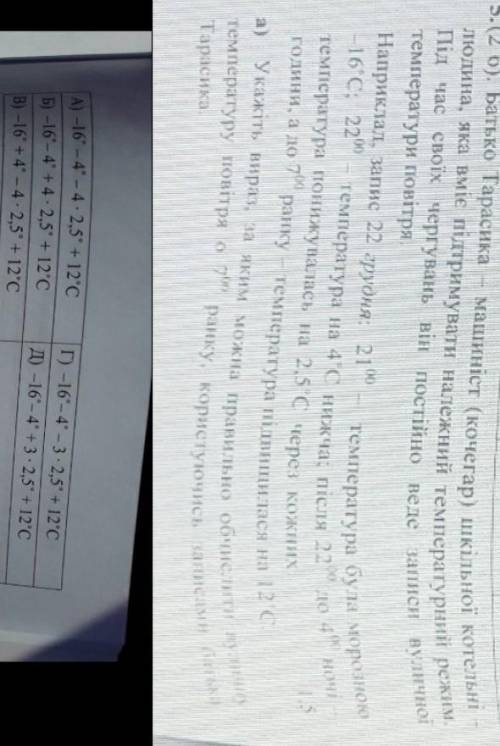 5.(2 б). Батько Тарасика – машиніст (кочегар) шкільної котельні –
людина, яка вміє підтримувати належний температурний режим.
Під час своїх чергувань він постійно веде записи вуличної
температури повітря
Наприклад, запис 22 грудня: 21⁰⁰ – температура була морозною
–16°С; 22⁰⁰ – температура на 4°С нижча; після 22⁰⁰ до 4⁰⁰ ночі –
температура понижувалась на 2,5°С через кожних 1,5
години, а до 7⁰⁰ ранку – температура підвищилася на 12°С
а) Укажіть вираз, за яким можна правильно обчислити вуличну
температуру повітря о 7⁰⁰ ранку, користуючись записами батька
Тарасика.
А) –16°– 4° – 4 · 2,5° + 12°С
Б) –16°– 4° + 4 · 2,5° + 12°С
В) –16° + 4° – 4 · 2,5° + 12°С
Г) –16°– 4° – 3 · 2,5° + 12°С
Д) –16°– 4° + 3 · 2,5° + 12°С